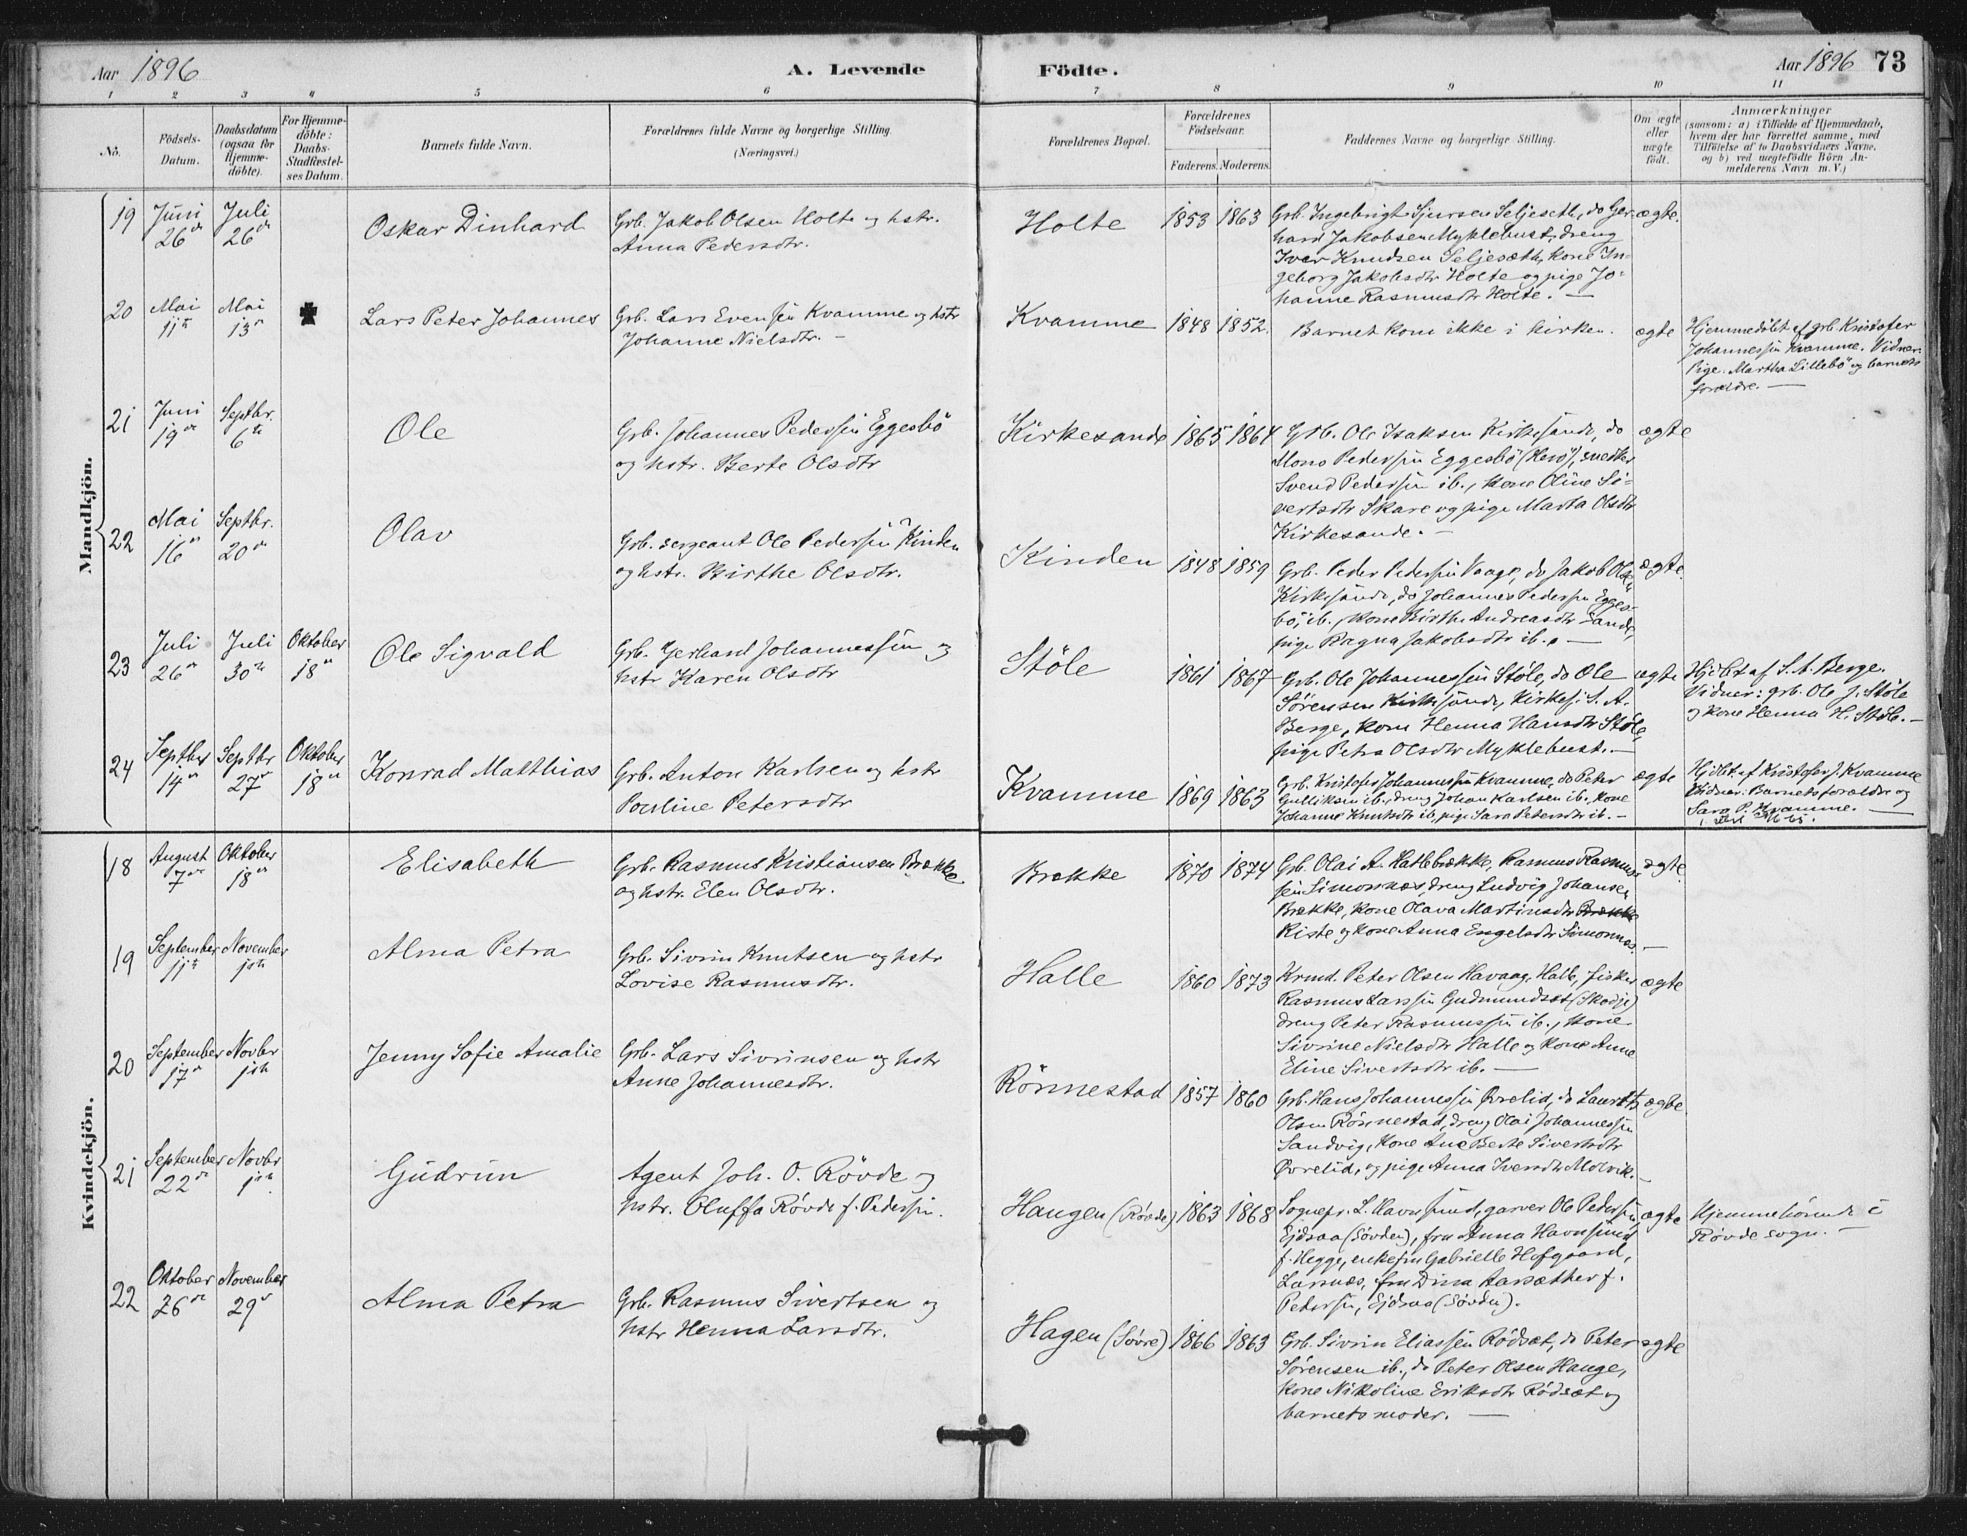 Aar 1896
A. Levende
Fødte.
Aar 1896 73
1 2 3 4 5 6 7 8 9 10 11
No.
Födsels-
Datum.
Daabsdatum
(ogsaa for
Hjemme-
döbte).
For Hjemme-
döbte:
Daabs-
Stadfæstel-
ses Datum.
Barnets fulde Navn.
Forældrenes fulde Navne og borgerlige Stilling.
(Næringsvei.)
Forældrenes Bopæl.
Forældrenes
Födselsaar.
Faderens. Moderens.
Faddernes Navne og borgerlige Stilling.
Om ægte
eller
uægte
födt.
Anmærkninger
(saasom: a) i Tilfælde af Hjemmedaab,
hvem der har forrettet samme, med
Tilföielse af to Daabsvidners Navne,
og b) ved uægtefödte Börn An-
melderens Navn m. V.)
Mandkjön.
19
Juni
26de
Juli
26de
Oskar Dinhard
Grb. Jakob Olsen Holte og hstr.
Anna Pedersdtr.
Holte
1853 1863
Grb. Ingebrigt Sjursen Seljeseth, do Ger-
hard Jakobsen Myklebust, dreng
Iver Knudsen Seljeseth, kone In-
geborg Jakobsdtr Holte og pige Jo-
hanne Rasmusdtr Holte. —
ægte.
20
Mai
11te
Mai
13de
Lars Peter Johannes
Grb. Lars Evensen Kvamme og hstr
Johanne Nielsdtr. —
Kvamme
1848 1852.
Barnet kom ikke i kirken.
ægte
Hjemmedöbt af grb. Kristofer
Johannessen Kvamme. Vidner:
Pige Martha Lillebö og barnets
forældre. —
21
Juni
19de
Septbr.
6te
Ole
Grb. Johannes Pedersen Eggesbö
og hstr. Berte Olsdtr
Kirkesande
1865 1864
Grb. Ole Isaksen Kirkesande, do
Mons Pedersen Eggesbö (Herö), snedker
Svend Pedersen ib., kone Oline Si-
vertsdtr Skare og pige Marta Olsdtr
Kirkesande. —
ægte
22
Mai
16de
Septbr.
20de
Olav
Grb. sergeant Ole Pedersen Kinden
og hstr. Birthe Olsdtr.
Kinden
1848 1859
Grb. Peder Pedersen Vaage, do Jakob Olsen
Kirkesande, do Johannes Pedersen Egges-
bö, ib., kone Birthe Andreasdtr Sande,
pige Ragna Jakobsdtr ib. —
ægte.
23
Juli
26de
Juli
30te
Oktober
18de
Ole Sigvald
Grb. Gerhard Johannessen og
hstr Karen Olsdtr
Stöle
1861 1867
Grb. Ole Johannessen Stöle, do Ole
Sörensen Kirkesande, Kirkes. S. A.
Berge, kone Henna Hansdtr Stöle,
pige Petra Olsdtr Myklebust. —
ægte
Hjdöbt af S. A. Berge.
Vidner: grb. Ole J. Stöle
og kone Henna H. Stöle. —
24
Septbr
14de
Septbr
27de
Oktober
18de
Konrad Matthias
Grb. Anton Karlsen og hstr
Pouline Petersdtr
Kvamme
1869 1863
Grb. Kristofer Johannessen Kvamme, do Peter
Gulliksen ib., dreng Johan Karlsen ib., kone
Johanne Knutsdtr ib, pige Sara Petersdtr ib. —
ægte
Hjdöbt af Kristofer J. Kvamme
Vidner: Barnets forældre og
Sara P. Kvamme. —
Kvindekjön.
18
August
7de
Oktober
18de
Elisabeth
Grb. Rasmus Kristiansen Brække
og hstr. Elen Olsdtr.
Brække
1870 1874
Grb. Olai A. Hatlebrække, Rasmus Rasmus-
sen Simonnes, dreng Ludvig Johansen
Brække, kone Olava Martinsdtr Brække
Riste og kone Anna Engelsdtr Simonnes. —
ægte.
19
September
11te
November
1ste
Alma Petra
Grb. Sivrin Knutsen og hstr
Lovise Rasmusdtr.
Halle
1860 1873
Krmd. Peter Olsen Havaag, Halle, fisker
Rasmus Larssen Gudmundset (Skodje)
dreng Peter Rasmussen ib., kone
Sivrine Nielsdtr Halle og kone Anne
Eline Sivertsdtr ib. —
ægte
20
September
17de
Novbr
1ste
Jenny Sofie Amalie
Grb. Lars Sivrinsen og hstr
Anne Johannesdtr.
Rönnestad
1857 1860
Grb. Hans Johannessen Øvrelid, do Lauritz
Olsen Rönnestad, dreng Olai Johannessen
Sandvig, kone Ane Berte Sivertsdtr
Øvrelid, og pige Anna Iversdtr Molvik. —
ægte.
21
September
22de
Novbr
1ste
Gudrun
Agent Joh. O. Rövde og
hstr. Oluffa Rövde f. Pedersen.
Haugen (Rövde)
1863 1868
Sognepr. L. Havnsund, garver Ole Pedersen
Ejdsaa (Sövden), fru Anna Havnsund
f. Hegge, enkefru Gabrielle Hofgaard,
Larsnes, fru Dina Aarsæther f.
Pedersen, Ejdsaa (Sövden).
ægte
Hjemmehörende i
Rövde sogn. —
22
Oktober
26de
November
29de
Alma Petra
Grb. Rasmus Sivertsen og
hstr Henna Larsdtr.
Hagen (Sövre)
1866 1863
Grb. Sivrin Eliassen Rödset, do Peter
Sörensen ib., do Peter Olsen Hauge,
kone Nikoline Eriksdtr Rödset og
barnets moder. —
ægte